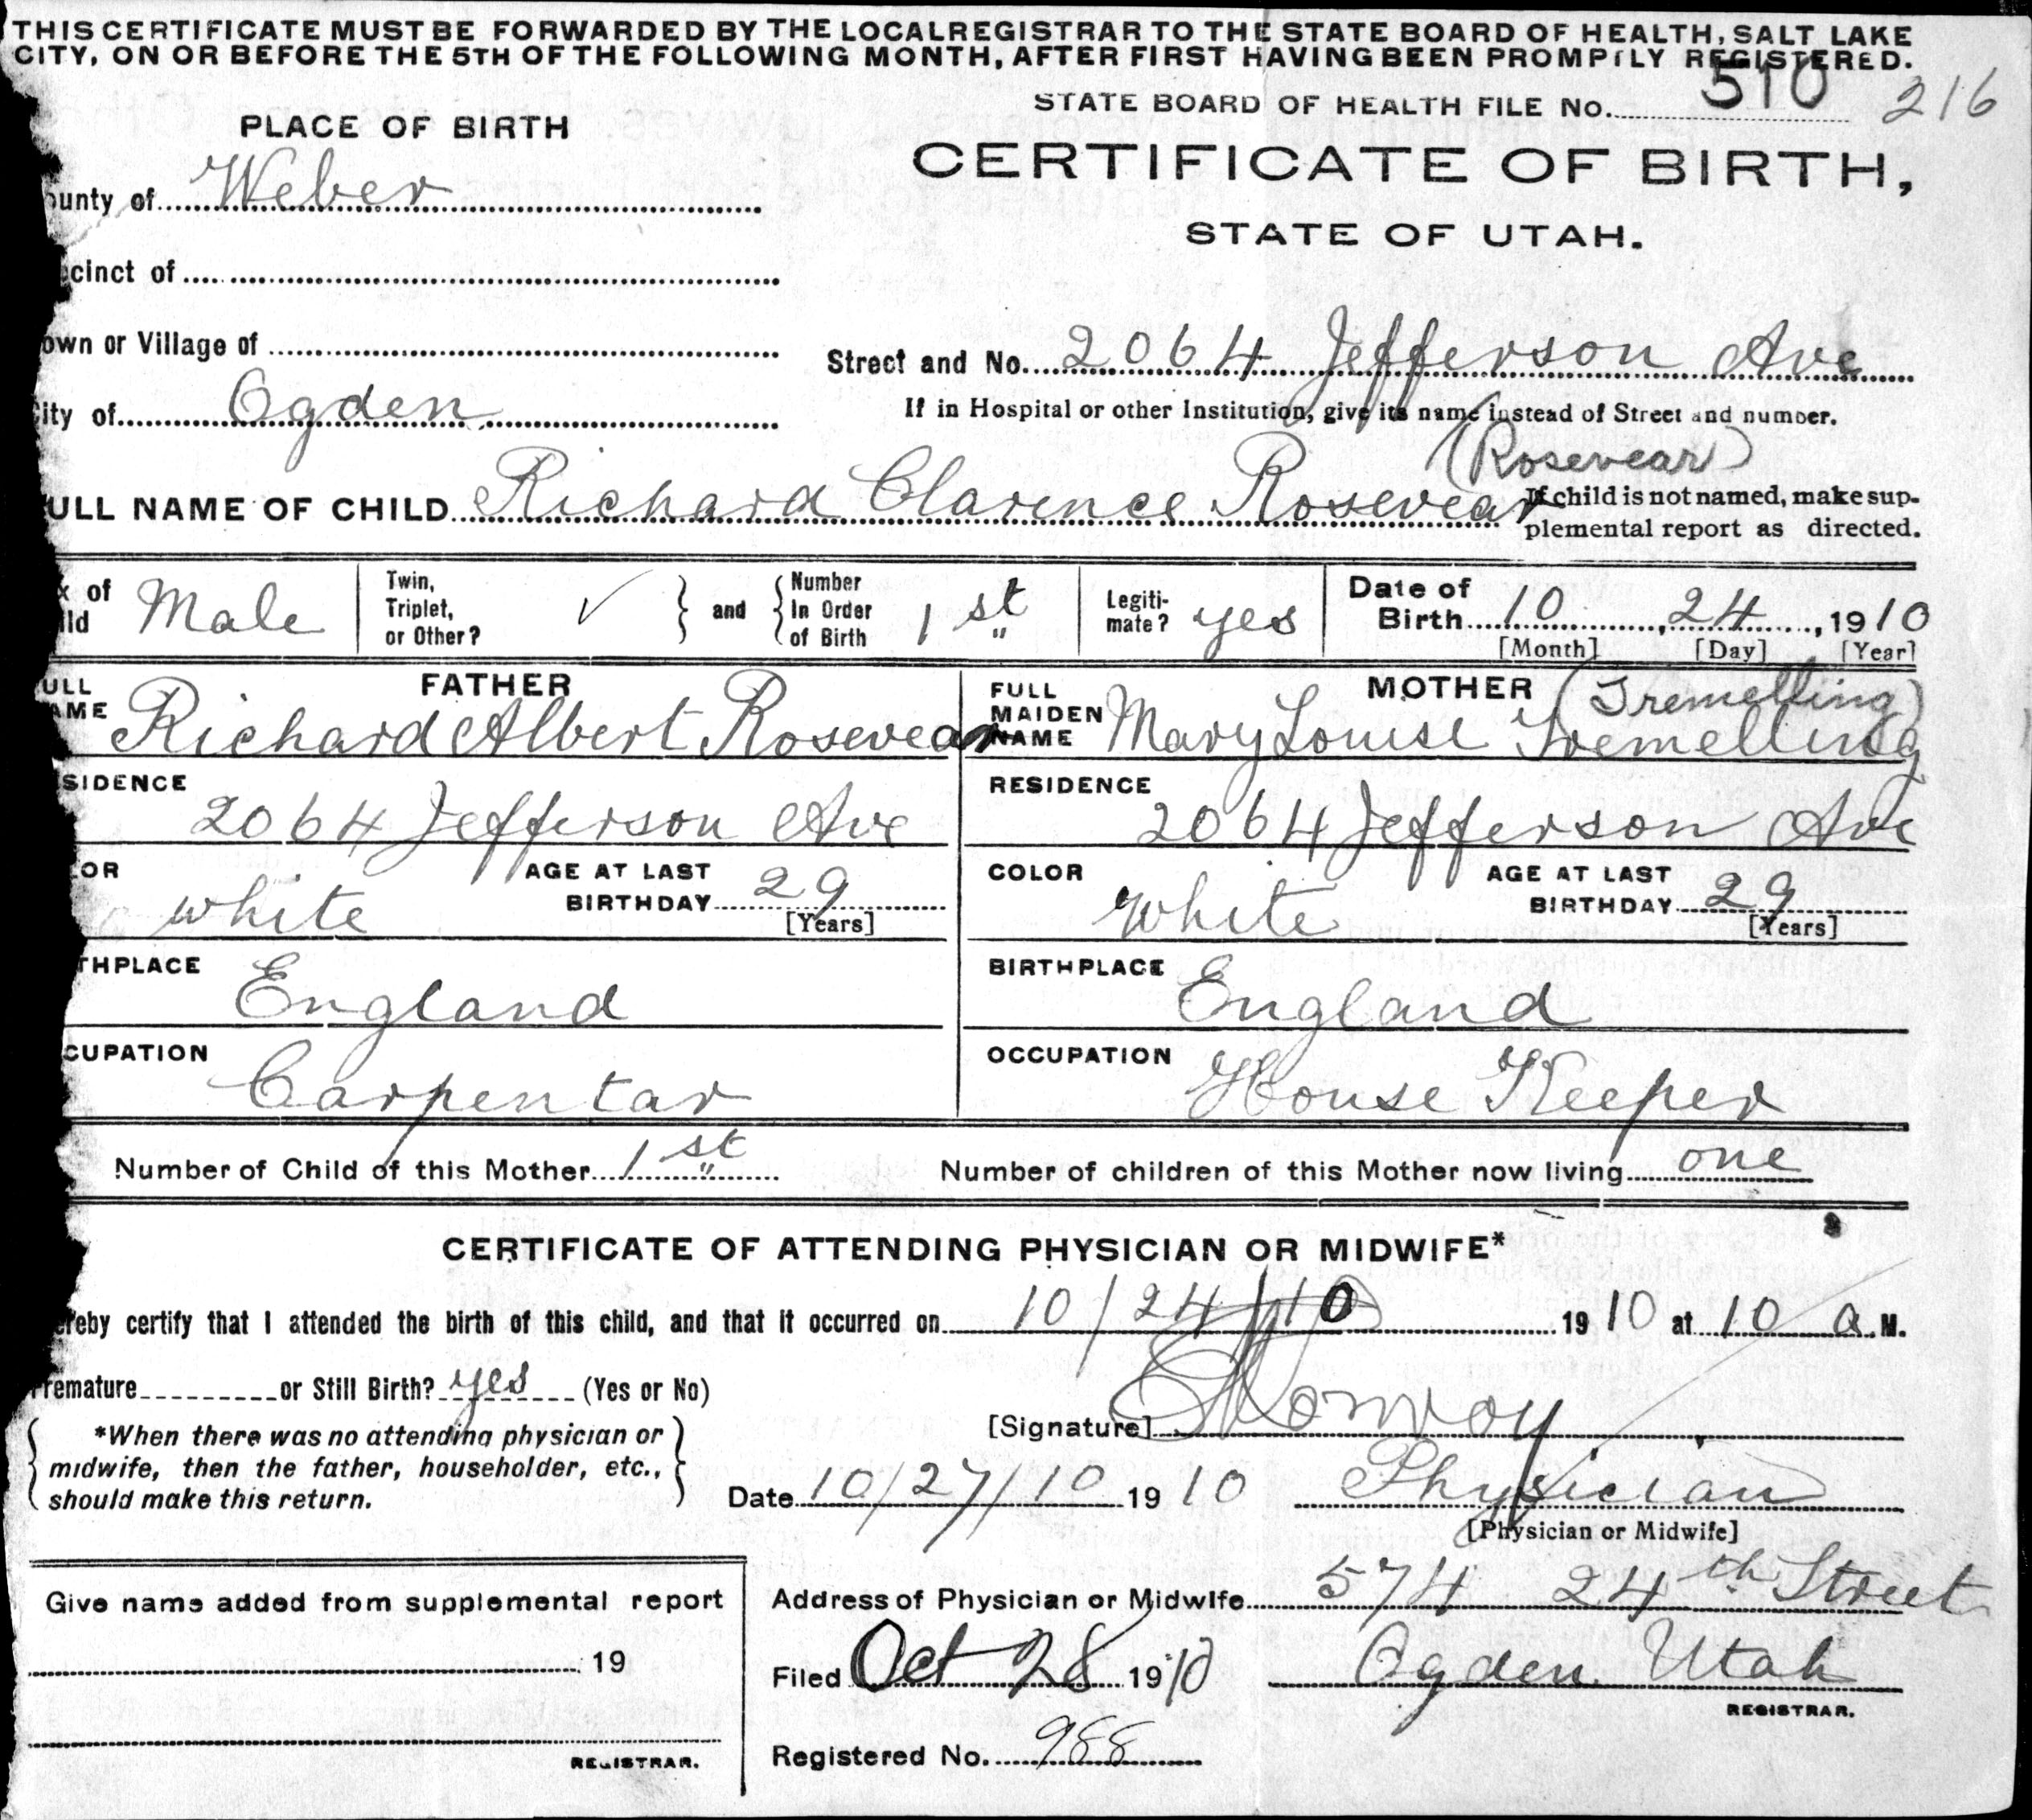 THIS CERTIFICATE MUST BE FORWARDED BY THE LOCAL REGISTRAR TO THE STATE BOARD OF HEALTH, SALT LAKE
CITY, ON OR BEFORE THE 5TH OF THE FOLLOWING MONTH, AFTER FIRST HAVING BEEN PROMPTLY REGISTERED.
STATE BOARD OF HEALTH FILE No. 510 216
PLACE OF BIRTH
CERTIFICATE OF BIRTH,
ounty of Weber
STATE OF UTAH.
cinct of
own or Village of
Street and No. 2064 Jefferson Ave
ity of Ogden
If in Hospital or other Institution, give its name instead of Street and number.
(Rosevear)
ULL NAME OF CHILD Richard Clarence Rosevear
If child is not named, make sup-
plemental report as directed.
x of
ild Male
Twin,
Triplet,
or Other? ✓
and
Number
In Order
of Birth 1st
Legiti-
mate? yes
Date of
Birth 10, 24, 1910
[Month] [Day] [Year]
FATHER
ULL
AME Richard Albert Rosevear
MOTHER (Tremelling)
FULL
MAIDEN
NAME Mary Louise Tremelling
SIDENCE 2064 Jefferson Ave
RESIDENCE 2064 Jefferson Ave
OR white
AGE AT LAST
BIRTHDAY 29
[Years]
COLOR White
AGE AT LAST
BIRTHDAY 29
[Years]
THPLACE England
BIRTHPLACE England
CUPATION Carpentar
OCCUPATION House Keeper
Number of Child of this Mother 1st
Number of children of this Mother now living one
CERTIFICATE OF ATTENDING PHYSICIAN OR MIDWIFE*
ereby certify that I attended the birth of this child, and that it occurred on 10/24/10 1910 at 10 a.M.
remature or Still Birth? yes (Yes or No)
[Signature] Conroy
*When there was no attending physician or
midwife, then the father, householder, etc.,
should make this return.
Date 10/27/10 1910
Physician
[Physician or Midwife]
Give name added from supplemental report
19
REGISTRAR.
Address of Physician or Midwife 574 24th Street
Filed Oct 28 1910
Ogden Utah
REGISTRAR.
Registered No. 988